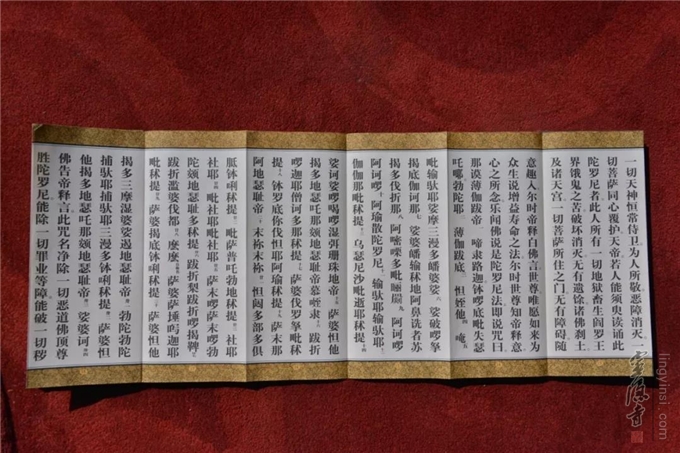 一切天神恒常侍卫为人所敬恶障消灭一
切菩萨同心覆护天帝若人能须臾读诵此
陀罗尼者此人所有一切地狱畜生阎罗王
界饿鬼之苦破坏消灭无有遗馀诸佛刹土
及诸天宫一切菩萨所住之门无有障碍随
意趣入尔时帝释白佛言世尊唯愿如来为
众生说增益寿命之法尔时世尊知帝释意
心之所念乐闻佛说是陀罗尼法即说咒曰
那谟薄伽跋帝 啼隶路迦钵啰底毗失瑟
吒啰勃陀耶 薄伽跋底 怛姪他 唵
毗输驮耶 娑摩三漫多皤婆娑 娑破啰拏
揭底伽诃那 娑婆皤输秫地 阿鼻诜者苏
揭多伐折那 阿嘧㗚多毗 阿诃啰
阿诃啰 阿瑜散陀罗尼 输驮耶输驮耶
伽伽那毗秫提 乌瑟尼沙毗逝耶秫提
娑诃娑啰喝啰湿弭珊珠地帝 萨婆怛他
揭多地瑟吒那頞地瑟耻帝慕姪隶 跋折
啰迦耶僧诃多那秫提 萨婆伐罗拏毗秫
提 钵罗底你伐怛耶阿瑜秫提 萨末那
阿地瑟耻帝 末祢末祢 怛闼多部多俱
胝钵唎秫提 毗萨普吒勃地秫提 社耶
社耶 毗社耶毗社耶 萨末啰萨末啰勃
陀頞地瑟耻多秫提 跋折梨跋折啰揭鞞
跋折滥婆伐都 麽麽 萨婆萨埵写迦耶
毗秫提 萨婆揭底钵唎秫提 萨婆怛他
揭多三摩湿婆娑遏地瑟耻帝 勃陀勃陀
捕驮耶捕驮耶三漫多钵唎秫提 萨婆怛
他揭多地瑟吒那頞地瑟耻帝 娑婆诃
佛告帝释言此咒名净除一切恶道佛顶尊
胜陀罗尼能除一切罪业等障能破一切秽
lingyinsi.com